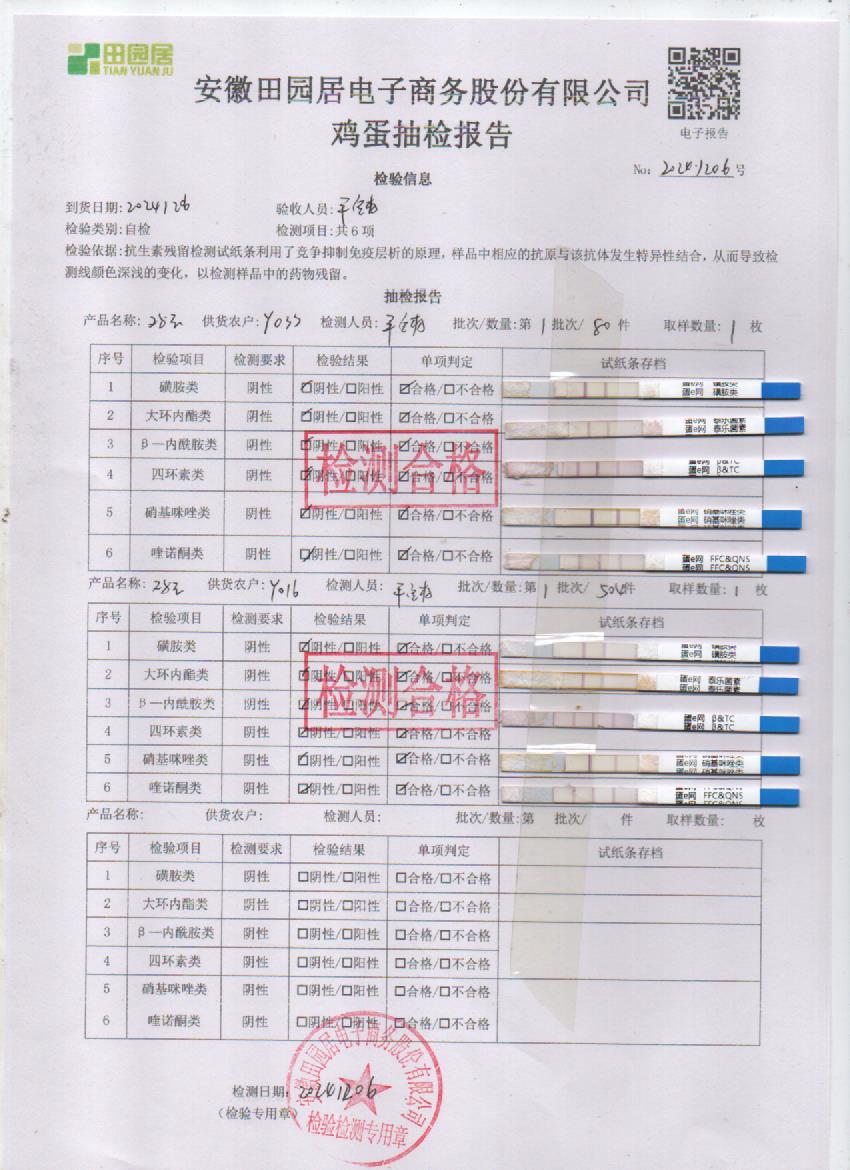 田园居
TIAN YUAN JU
安徽田园居电子商务股份有限公司
鸡蛋抽检报告
电子报告
No: 20241206 号
检验信息
到货日期: 2024126 验收人员:
检验类别:自检 检测项目:共6项
检验依据:抗生素残留检测试纸条利用了竞争抑制免疫层析的原理，样品中相应的抗原与该抗体发生特异性结合，从而导致检
测线颜色深浅的变化，以检测样品中的药物残留。
抽检报告
产品名称: 供货农户: Y033 检测人员: 批次/数量:第 1 批次/ 80 件 取样数量: 1 枚
序号 检验项目 检测要求 检验结果 单项判定 试纸条存档
1 磺胺类 阴性 ☑阴性/☐阳性 ☑合格/☐不合格 蛋e网 磺胺类
2 大环内酯类 阴性 ☑阴性/☐阳性 ☑合格/☐不合格 蛋e网 泰乐菌素
3 β—内酰胺类 阴性 ☑阴性/☐阳性 ☑合格/☐不合格
4 四环素类 阴性 ☑阴性/☐阳性 ☑合格/☐不合格 蛋e网 β&TC
5 硝基咪唑类 阴性 ☑阴性/☐阳性 ☑合格/☐不合格 蛋e网 硝基咪唑类
6 喹诺酮类 阴性 ☑阴性/☐阳性 ☑合格/☐不合格 蛋e网 FFC&QNS
检测合格
产品名称: 供货农户: Y016 检测人员: 批次/数量:第 1 批次/ 件 取样数量: 1 枚
序号 检验项目 检测要求 检验结果 单项判定 试纸条存档
1 磺胺类 阴性 ☑阴性/☐阳性 ☑合格/☐不合格 蛋e网 磺胺类
2 大环内酯类 阴性 ☑阴性/☐阳性 ☑合格/☐不合格 蛋e网 泰乐菌素
3 β—内酰胺类 阴性 ☑阴性/☐阳性 ☑合格/☐不合格 蛋e网 β&TC
4 四环素类 阴性 ☑阴性/☐阳性 ☑合格/☐不合格
5 硝基咪唑类 阴性 ☑阴性/☐阳性 ☑合格/☐不合格 蛋e网 硝基咪唑类
6 喹诺酮类 阴性 ☑阴性/☐阳性 ☑合格/☐不合格 蛋e网 FFC&QNS
检测合格
产品名称: 供货农户: 检测人员: 批次/数量:第 批次/ 件 取样数量: 枚
序号 检验项目 检测要求 检验结果 单项判定 试纸条存档
1 磺胺类 阴性 ☐阴性/☐阳性 ☐合格/☐不合格
2 大环内酯类 阴性 ☐阴性/☐阳性 ☐合格/☐不合格
3 β—内酰胺类 阴性 ☐阴性/☐阳性 ☐合格/☐不合格
4 四环素类 阴性 ☐阴性/☐阳性 ☐合格/☐不合格
5 硝基咪唑类 阴性 ☐阴性/☐阳性 ☐合格/☐不合格
6 喹诺酮类 阴性 ☐阴性/☐阳性 ☐合格/☐不合格
安徽田园居电子商务股份有限公司
检测日期: 20241206
(检验专用章)
检验检测专用章